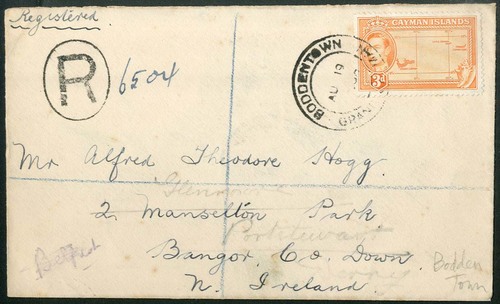 Registered.
CAYMAN ISLANDS
3d
BODDENTOWN
AU 19
GRAN
R
6504
Mr Alfred Theodore Hogg.
2, Manselton Park
Bangor, Co. Down.
N. Ireland.
Belfast
Bodden
Town